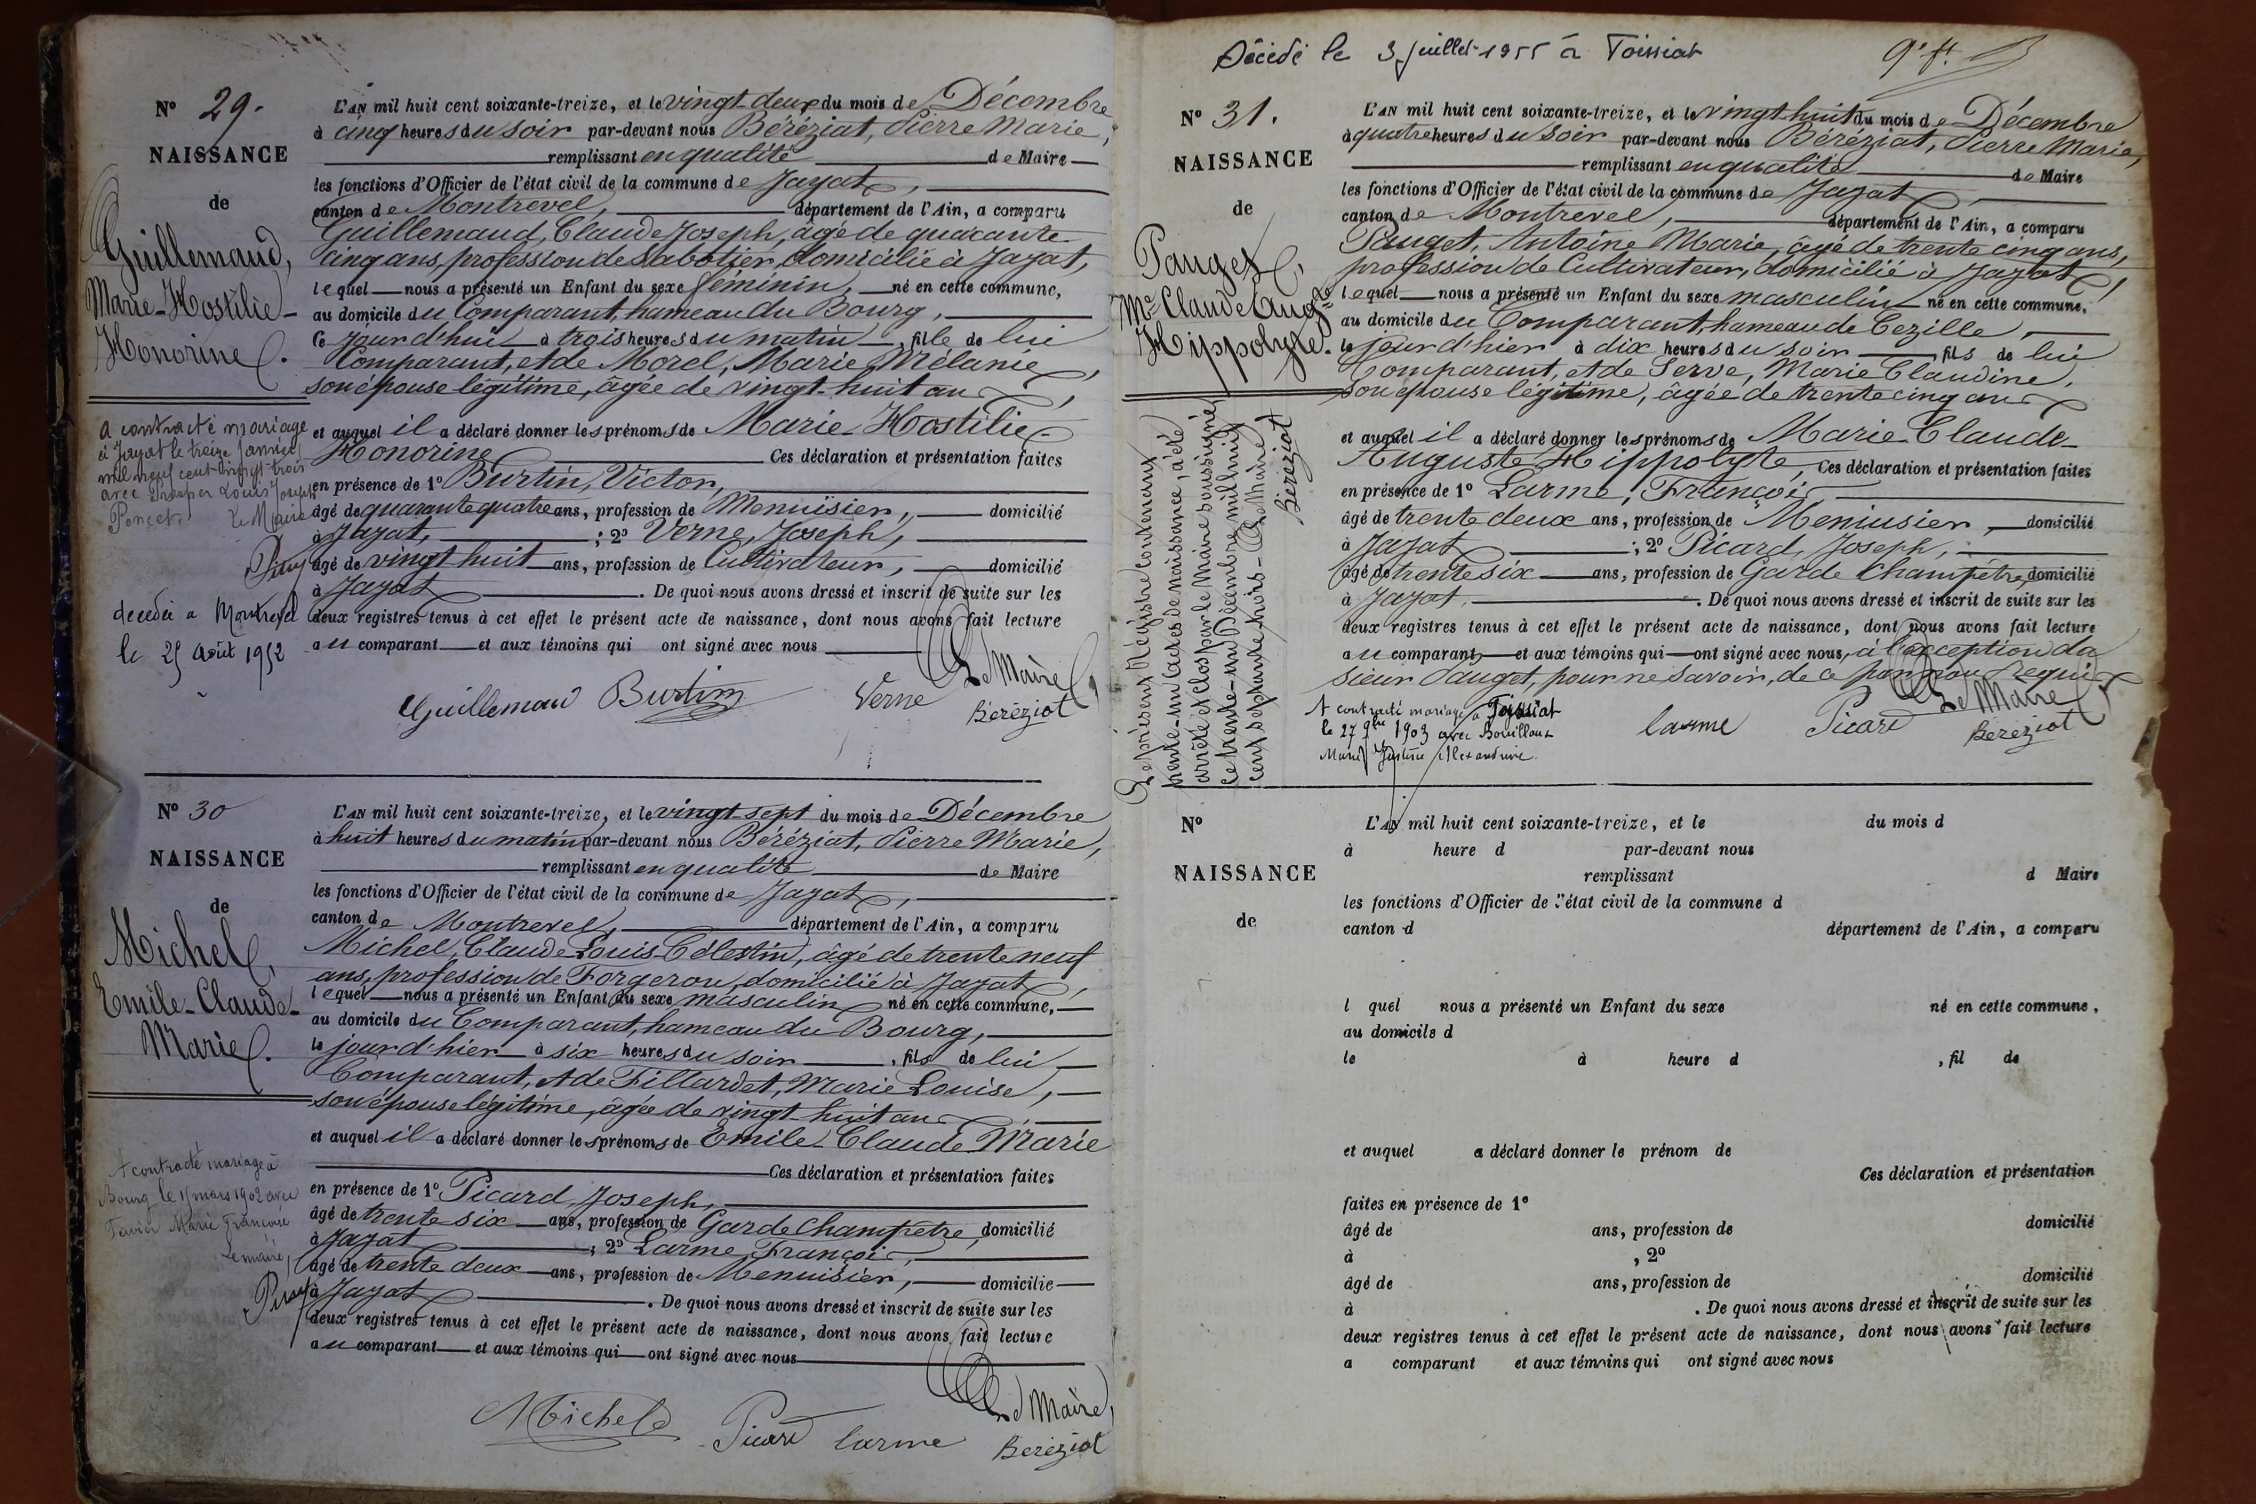 N° 29.
NAISSANCE
de
Guillemaud,
Marie-Hostilie-
Honorine.
A contracté mariage
à Jayat le treize janvier
mil neuf cent vingt trois
avec Louis Joseph
Ponçet. Le Maire
décédée a Montrevel
le 25 Août 1952
L'AN mil huit cent soixante-treize, et le vingt deux du mois de Décembre
à cinq heures du soir par-devant nous Béréziat, Pierre Marie,
remplissant en qualité de Maire
les fonctions d'Officier de l'état civil de la commune de Jayat,
canton de Montrevel, département de l'Ain, a comparu
Guillemaud, Claude Joseph, âgé de quarante
cinq ans, profession de Sabotier, domicilié à Jayat,
lequel nous a présenté un Enfant du sexe féminin, né en cette commune,
au domicile du Comparant, hameau du Bourg,
Ce jourd'hui à trois heures du matin, fille de lui
Comparant, et de Morel, Marie Mélanie,
son épouse légitime, âgée de vingt-huit ans,
et auquel il a déclaré donner les prénoms de Marie-Hostilie-
Honorine Ces déclaration et présentation faites
en présence de 1° Burtin, Victor,
âgé de quarante quatre ans, profession de Menuisier, domicilié
à Jayat, ; 2° Verne, Joseph,
âgé de vingt huit ans, profession de Cultivateur, domicilié
à Jayat. De quoi nous avons dressé et inscrit de suite sur les
deux registres tenus à cet effet le présent acte de naissance, dont nous avons fait lecture
au comparant et aux témoins qui ont signé avec nous
Le Maire
Guillemaud Burtin Verne Béréziat
N° 30
NAISSANCE
de
Michel,
Emile-Claude-
Marie.
A contracté mariage à
Bourg le 15 mars 1902 avec
Marie Françoise
Le maire,
L'AN mil huit cent soixante-treize, et le vingt-sept du mois de Décembre
à huit heures du matin par-devant nous Béréziat, Pierre Marie,
remplissant en qualité de Maire
les fonctions d'Officier de l'état civil de la commune de Jayat,
canton de Montrevel, département de l'Ain, a comparu
Michel, Claude Louis Célestin, âgé de trente neuf
ans, profession de Forgeron, domicilié à Jayat,
lequel nous a présenté un Enfant du sexe masculin né en cette commune,
au domicile du Comparant, hameau du Bourg,
le jour d'hier à six heures du soir, fils de lui
Comparant, et de Fillardet, Marie Louise,
son épouse légitime, âgée de vingt-huit ans
et auquel il a déclaré donner les prénoms de Emile-Claude Marie
Ces déclaration et présentation faites
en présence de 1° Picard, Joseph,
âgé de trente six ans, profession de Garde Champêtre, domicilié
à Jayat ; 2° Larme, François,
âgé de trente deux ans, profession de Menuisier, domicilié
à Jayat. De quoi nous avons dressé et inscrit de suite sur les
deux registres tenus à cet effet le présent acte de naissance, dont nous avons fait lecture
au comparant et aux témoins qui ont signé avec nous
Le Maire,
Michel Picard larme Béréziat
Décédé le 3 juillet 1955 à Foissiat
N° 31.
NAISSANCE
de
Pauget,
Mie Claude Augte
Hippolyte.
Le présent Régistre contenant
trente-un actes de naissance, a été
arrêté et clos par le Maire soussigné
ce trente-un Décembre mil huit
cent septante trois- Le Maire
Béréziat
L'AN mil huit cent soixante-treize, et le vingt huit du mois de Décembre
à quatre heures du soir par-devant nous Béréziat, Pierre Marie,
remplissant en qualité de Maire
les fonctions d'Officier de l'état civil de la commune de Jayat,
canton de Montrevel, département de l'Ain, a comparu
Pauget, Antoine Marie, âgé de trente cinq ans,
profession de Cultivateur, domicilié à Jayat,
lequel nous a présenté un Enfant du sexe masculin né en cette commune.
au domicile du Comparant, hameau de Cezille,
le jour d'hier à dix heures du soir, fils de lui
Comparant, et de Serve, Marie Claudine,
son épouse légitime, âgée de trente cinq ans
et auquel il a déclaré donner les prénoms de Marie-Claude
Auguste Hippolyte, Ces déclaration et présentation faites
en présence de 1° Larme, François,
âgé de trente deux ans, profession de Meniusier, domicilié
à Jayat ; 2° Picard, Joseph,
âgé de trente six ans, profession de Garde Champêtre, domicilié
à Jayat. De quoi nous avons dressé et inscrit de suite sur les
deux registres tenus à cet effet le présent acte de naissance, dont nous avons fait lecture
au comparant et aux témoins qui ont signé avec nous, à l'exception du
sieur Pauget, pour ne savoir, de ce par nous requis
Le Maire
larme Picard Béréziat
A contracté mariage à Foissiat
le 27 9bre 1903 avec Bouilloux
Marie Justine Alexandrine.
N°
NAISSANCE
de
L'AN mil huit cent soixante-treize, et le du mois d
à heure d par-devant nous
remplissant d Maire
les fonctions d'Officier de l'état civil de la commune d
canton d département de l'Ain, a comparu
l quel nous a présenté un Enfant du sexe né en cette commune,
au domicile d
le à heure d , fil de
et auquel a déclaré donner le prénom de
Ces déclaration et présentation
faites en présence de 1°
âgé de ans, profession de domicilié
à , 2°
âgé de ans, profession de domicilié
à . De quoi nous avons dressé et inscrit de suite sur les
deux registres tenus à cet effet le présent acte de naissance, dont nous avons fait lecture
a comparant et aux témoins qui ont signé avec nous